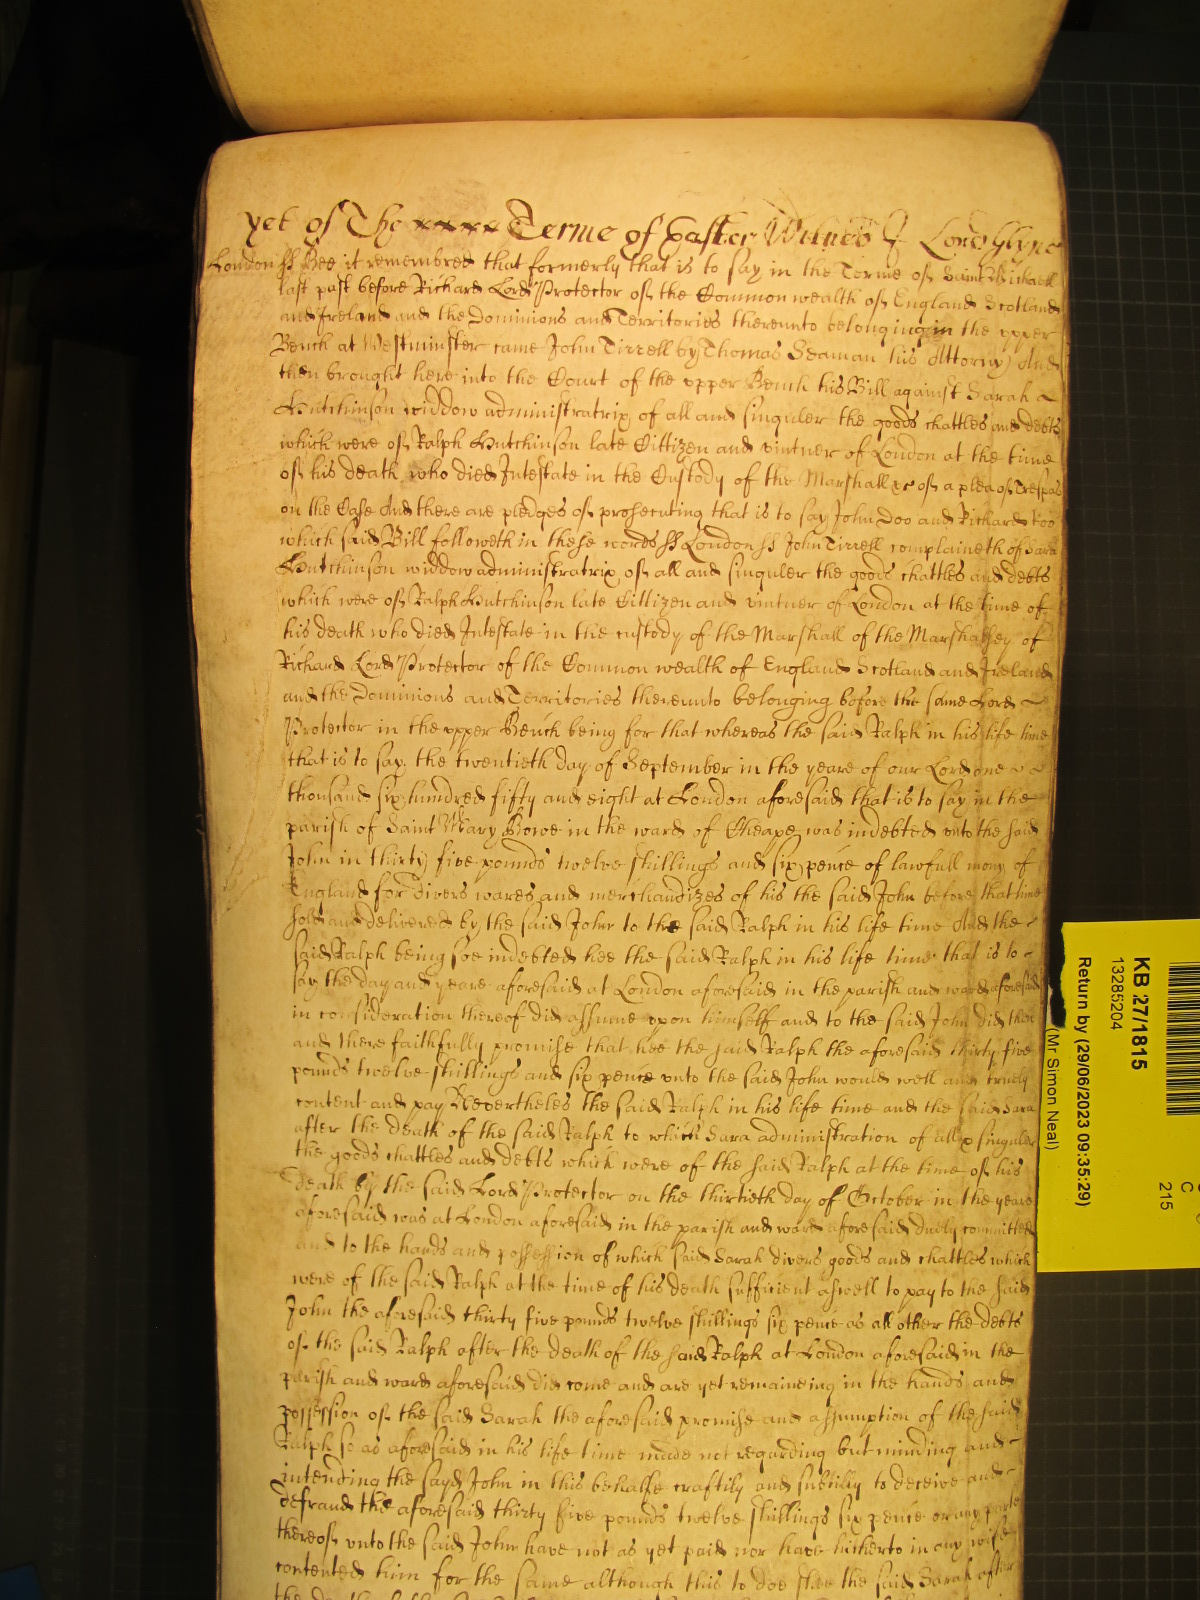 yet of The Terme of Easter Witnes J Lord Glyne
London ss Bee it remembred that formerly that is to say in the Terme of Saint Michaell
last past before Richard Lord Protector of the Common wealth of England Scotland
and Ireland and the Dominions and Territories thereunto belonging in the vpper
Bench at Westminster came John Tirrell by Thomas Seaman his Attorny And
then brought here into the Court of the vpper Bench his Bill against Sarah
Hutchinson widdow administratrix of all and singuler the goods chattles and debts
which were of Ralph Hutchinson late Cittizen and vintner of London at the time
of his death who died Intestate in the Custody of the Marshall &c of a plea of Trespas
on the Case And there are pledges of prosecuting that is to say John Doo and Richard Roo
which said Bill followeth in these words ss London ss John Tirrell complaineth of Sara
Hutchinson widdow administratrix of all and singuler the goods chattles and debts
which were of Ralph Hutchinson late Cittizen and vintner of London at the time of
his death who died Intestate in the custody of the Marshall of the Marshalsey of
Richard Lord Protector of the Common wealth of England Scotland and Ireland
and the Dominions and Territories thereunto belonging before the same Lord
Protector in the vpper Bench being for that whereas the said Ralph in his life time
that is to say the twentieth day of September in the yeare of our Lord one
thousand six hundred fifty and eight at London aforesaid that is to say in the
parish of Saint Mary Bowe in the ward of Cheape was indebted vnto the said
John in thirty five pounds twelve shillings and six pence of lawfull mony of
England for divers wares and merchandizes of his the said John before that time
sold and delivered by the said John to the said Ralph in his life time And the
said Ralph being soe indebted hee the said Ralph in his life time that is to
say the day and yeare aforesaid at London aforesaid in the parish and ward aforesaid
in consideration thereof did assume vpon himself and to the said John did then
and there faithfully promise that hee the said Ralph the aforesaid thirty five
pounds twelve shillings and six pence vnto the said John would well and truely
content and pay Nevertheles the said Ralph in his life time and the said Sara
after the death of the said Ralph to which Sara administration of all & singuler
the goods chattles and debts which were of the said Ralph at the time of his
death by the said Lord Protector on the thirtieth day of October in the yeare
aforesaid was at London aforesaid in the parish and ward aforesaid duely committed
and to the hands and possession of which said Sarah divers goods and chattles which
were of the said Ralph at the time of his death sufficient aswell to pay to the said
John the aforesaid thirty five pounds twelve shillings six pence as all other the debts
of the said Ralph after the death of the said Ralph at London aforesaid in the
parish and ward aforesaid did come and are yet remaineing in the hands and
possession of the said Sarah the aforesaid promise and assumption of the said
Ralph so as aforesaid in his life time made not regarding but minding and
intending the sayd John in this behalfe craftily and subtilly to deceive and
defraud the aforesaid thirty five pounds twelve shillings six pence or any parte
thereof vnto the said John have not as yet paid nor have hitherto in any wise
contented him for the same although this to doe shee the said Sarah after
KB 27/1815
13285204
Return by (29/06/2023 09:35:29)
(Mr Simon Neal)
C
215